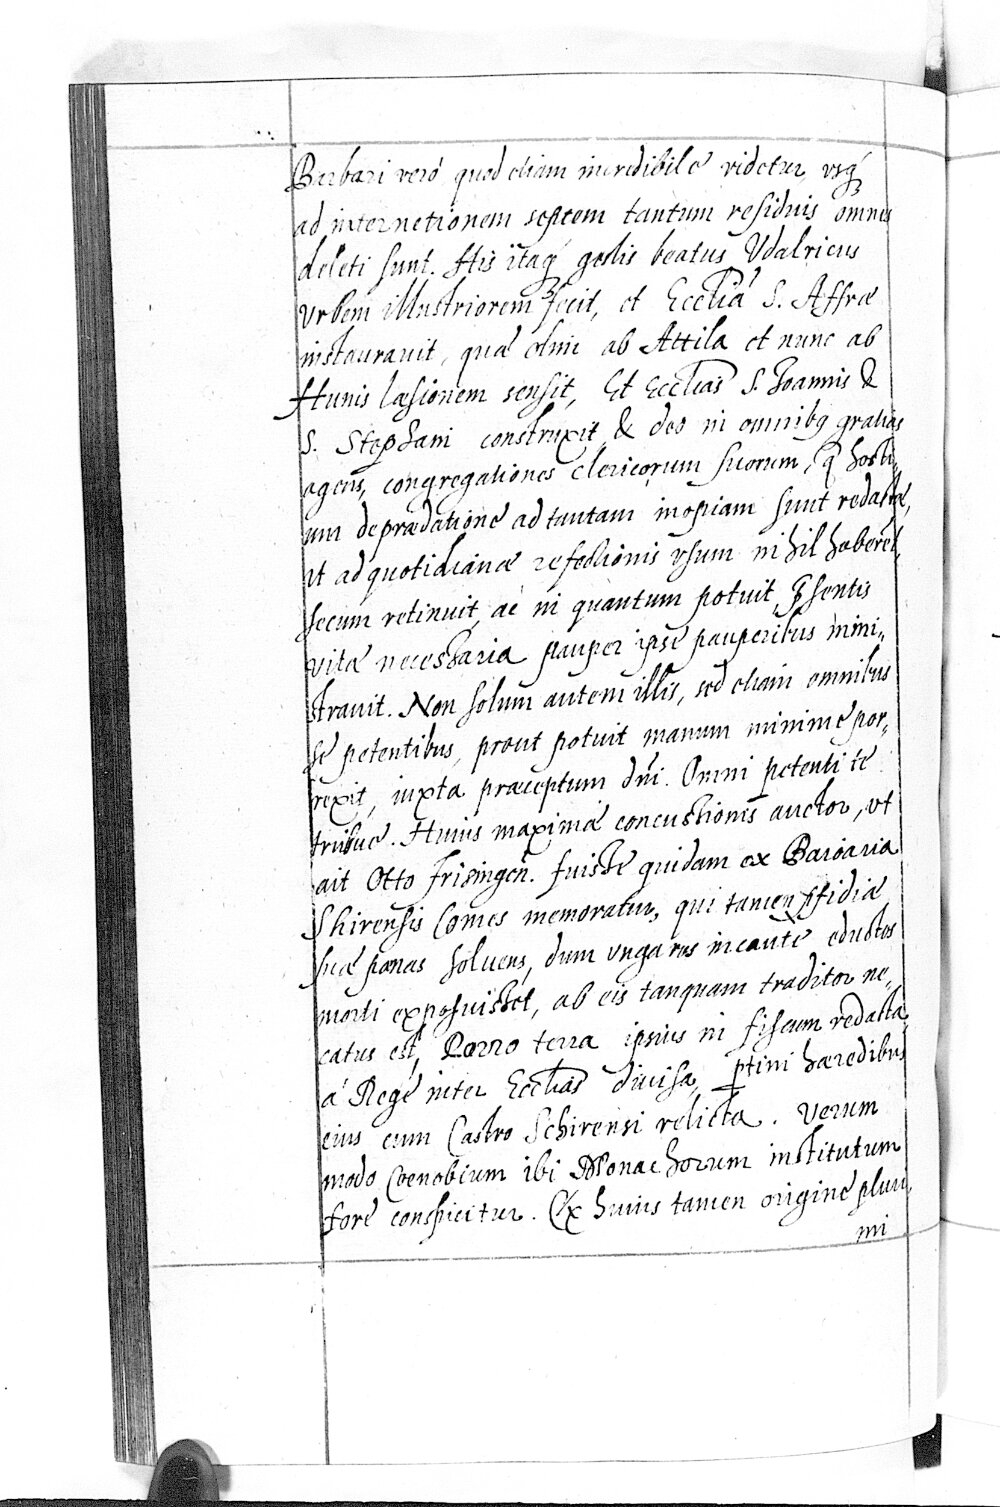 Barbari veró quod etiam incredibile videtur, usq́
ad internetionem septem tantum residuis omnes
deleti sunt. His itaq́ gestis beatus Vdalricus
Vrbem illustriorem fecit, et Eccliã S. Affræ
instaurauit, quæ olim ab Attila et nunc ab
Hunis læsionem sensit, Et Ecclias S. Joannis &
S. Stephani construxit & deo in omnibq gratias
agens, congregationes clericorum suorum, q̃ hosti,,
um deprædatione ad tantam inopiam sunt redactæ,
vt ad quotidianæ refectionis vsum nihil haberẽt,
secum retinuit, ac in quantum potuit, p̃sentis
vitæ necessaria pauper ipse pauperibus mini,,
strauit. Non solum autem illis, sed etiam omnibus
se petentibus, prout potuit manum minime por,,
rexit, iuxta præceptum dñi. Omni petenti te
tribue. Huius maximæ concussionis auctor, vt
ait Otto frisingeñ. fuisse quidam ex Baioaria
Shirensis Comes memoratur, qui tamen pfidiæ
suæ pœnas soluens, dum vngaros incautè eductos
morti exposuisset, ab eis tanquam traditor ne,,
catus est, Porro terra ipsius in fiscum redacta,
á Rege inter Ecclias diuisa, ptini hæredibus
eius cum Castro Schirensi relicta. Verum
modo Coenobium ibi Monachorum institutum
fore conspicitur. Ex huius tamen origine pluri,
mi